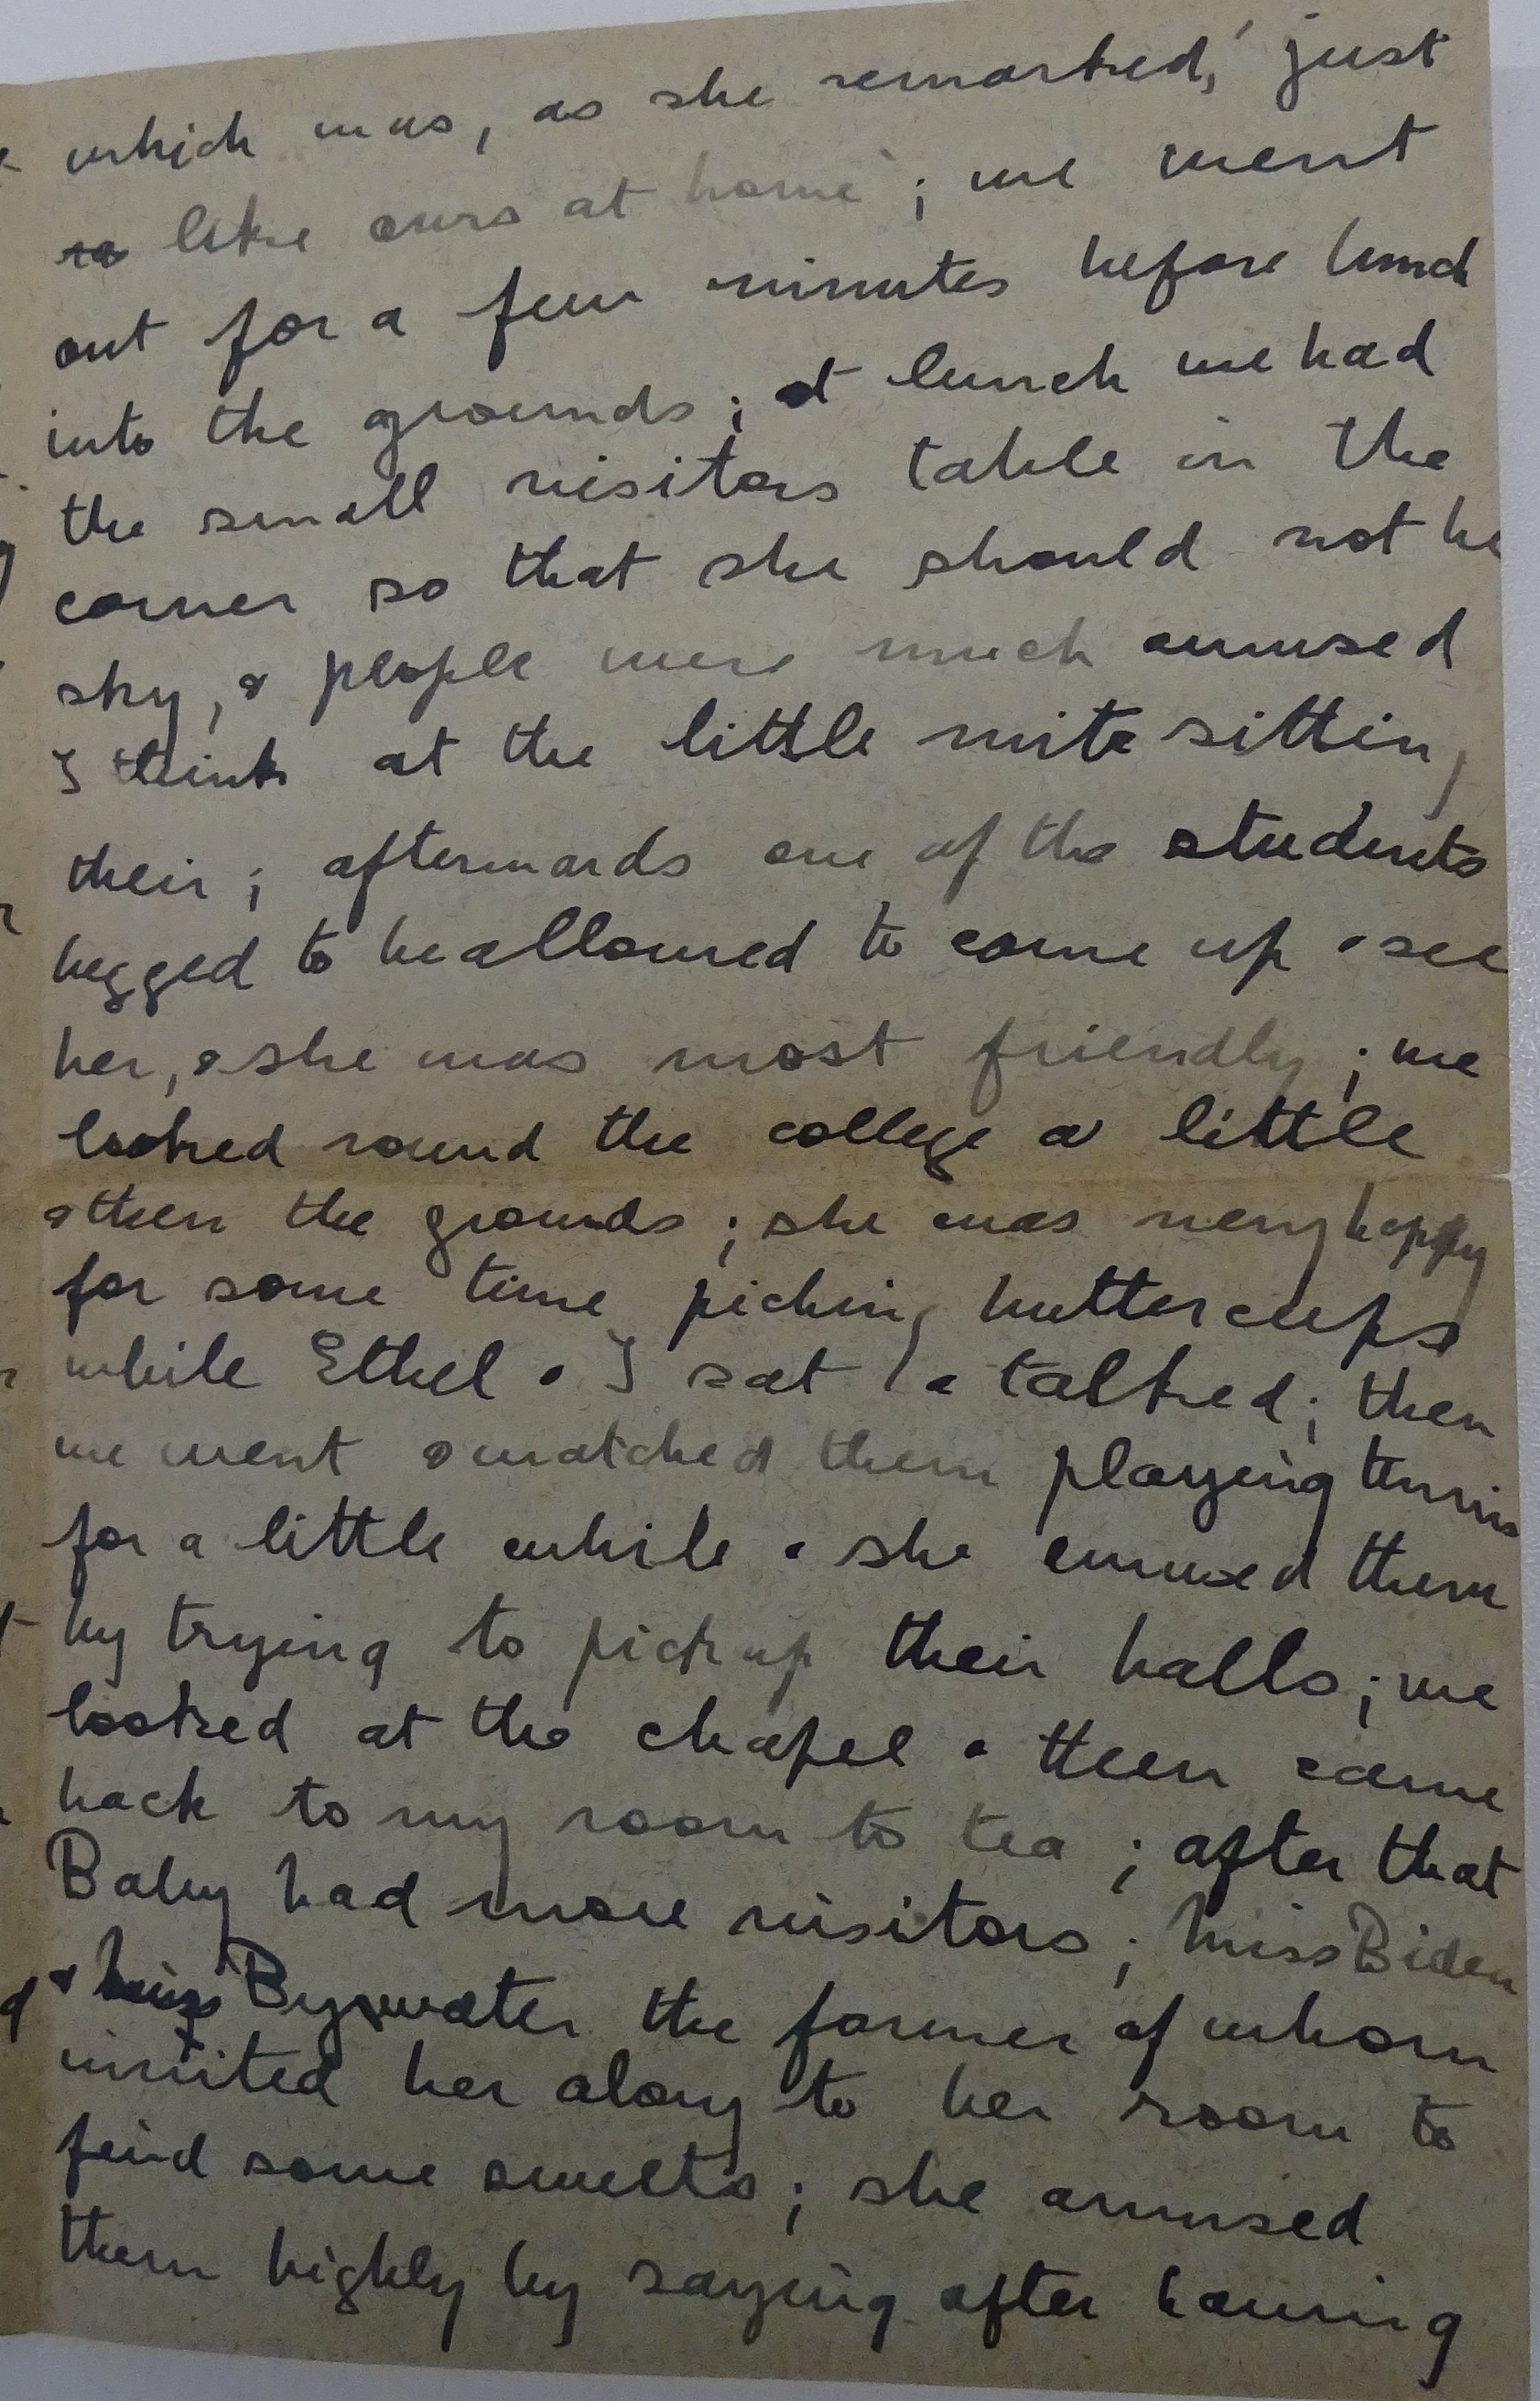 which was, as she remarked, 'just
like ours at home'; we went
out for a few minutes before lunch
into the grounds; at lunch we had
the small visitors table in the
corner so that she should not be
shy, & people were much amused
I think at the little mite sitting
their; afterwards one of the students
begged to be allowed to come up & see
her, & she was most friendly; we
looked round the college a little
& then the grounds; she was very happy
for some time picking buttercups
while Ethel & I sat & talked; then
we went & watched them playing tennis
for a little while & she amused them
by trying to pick up their balls; we
looked at the chapel & then came
back to my room to tea; after that
Baby had more visitors; Miss Biden
& Miss Bywater the former of whom
invited her along to her room to
find some sweets; she amused
them highly by saying after having